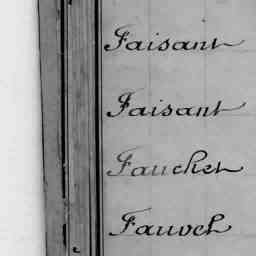 Faisant
Faisant
Fauchet
Fauvel